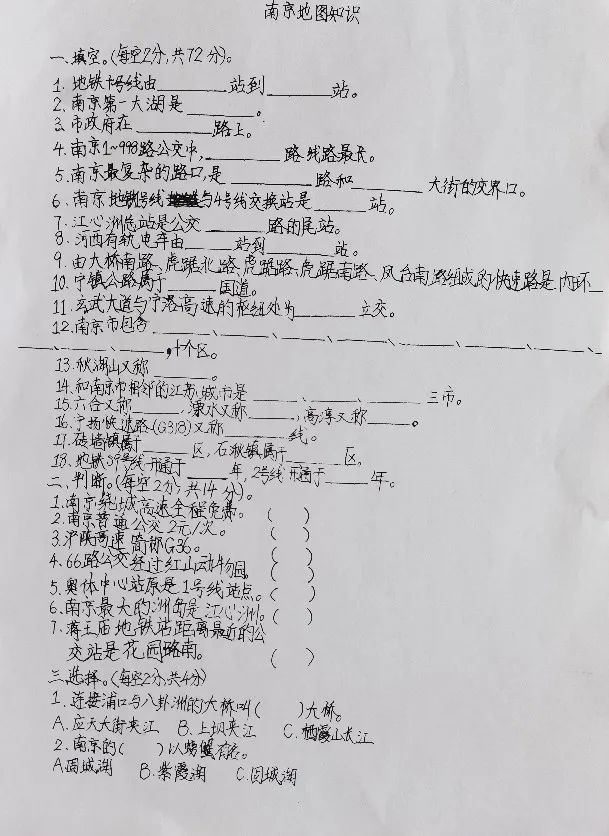 南京地图知识
一、填空。(每空2分,共72分)。
1. 地铁1号线由______站到______站。
2. 南京第一大湖是______。
3. 市政府在______路上。
4. 南京1~998路公交中,______路线路最长。
5. 南京最复杂的路口,是______路和______大街的交界口。
6. 南京地铁1号线与4号线交换站是______站。
7. 江心洲总站是公交______路的尾站。
8. 河西有轨电车由____站到______站。
9. 由大桥南路、虎踞北路、虎踞路、虎踞南路、凤台南路组成的快速路是内环__
10. 宁镇公路属于______国道。
11. 玄武大道与宁港高速的枢纽处为______立交。
12. 南京市包含______、______、______、______、______、______、
______、______、______、______,十个区。
13. 秋湖山又称______。
14. 和南京市相邻的江苏城市是______、______、______三市。
15. 六合又称____,溧水又称____,高淳又称____。
16. 宁扬快速路(G318)又称______线。
17. 砖墙镇属于____区,石湫镇属于____区。
18. 地铁S9号线开通于____年,2号线开通于____年。
二、判断。(每空2分,共14分)。
1. 南京绕城高速全程免费。( )
2. 南京普通公交2元/次。( )
3. 沪陕高速简称G36。( )
4. 66路公交经过红山动物园。( )
5. 奥体中心站原是1号线站点。( )
6. 南京最大的洲岛是江心洲。( )
7. 蒋王庙地铁站距离最近的公
交站是花园路南。( )
三、选择。(每空2分,共4分)
1. 连接浦口与八卦洲的大桥叫( )大桥。
A. 应天大街夹江 B. 上坝夹江 C. 栖霞山长江
2. 南京的( )以螃蟹有名。
A. 固城湖 B. 紫霞湖 C. 固城湖